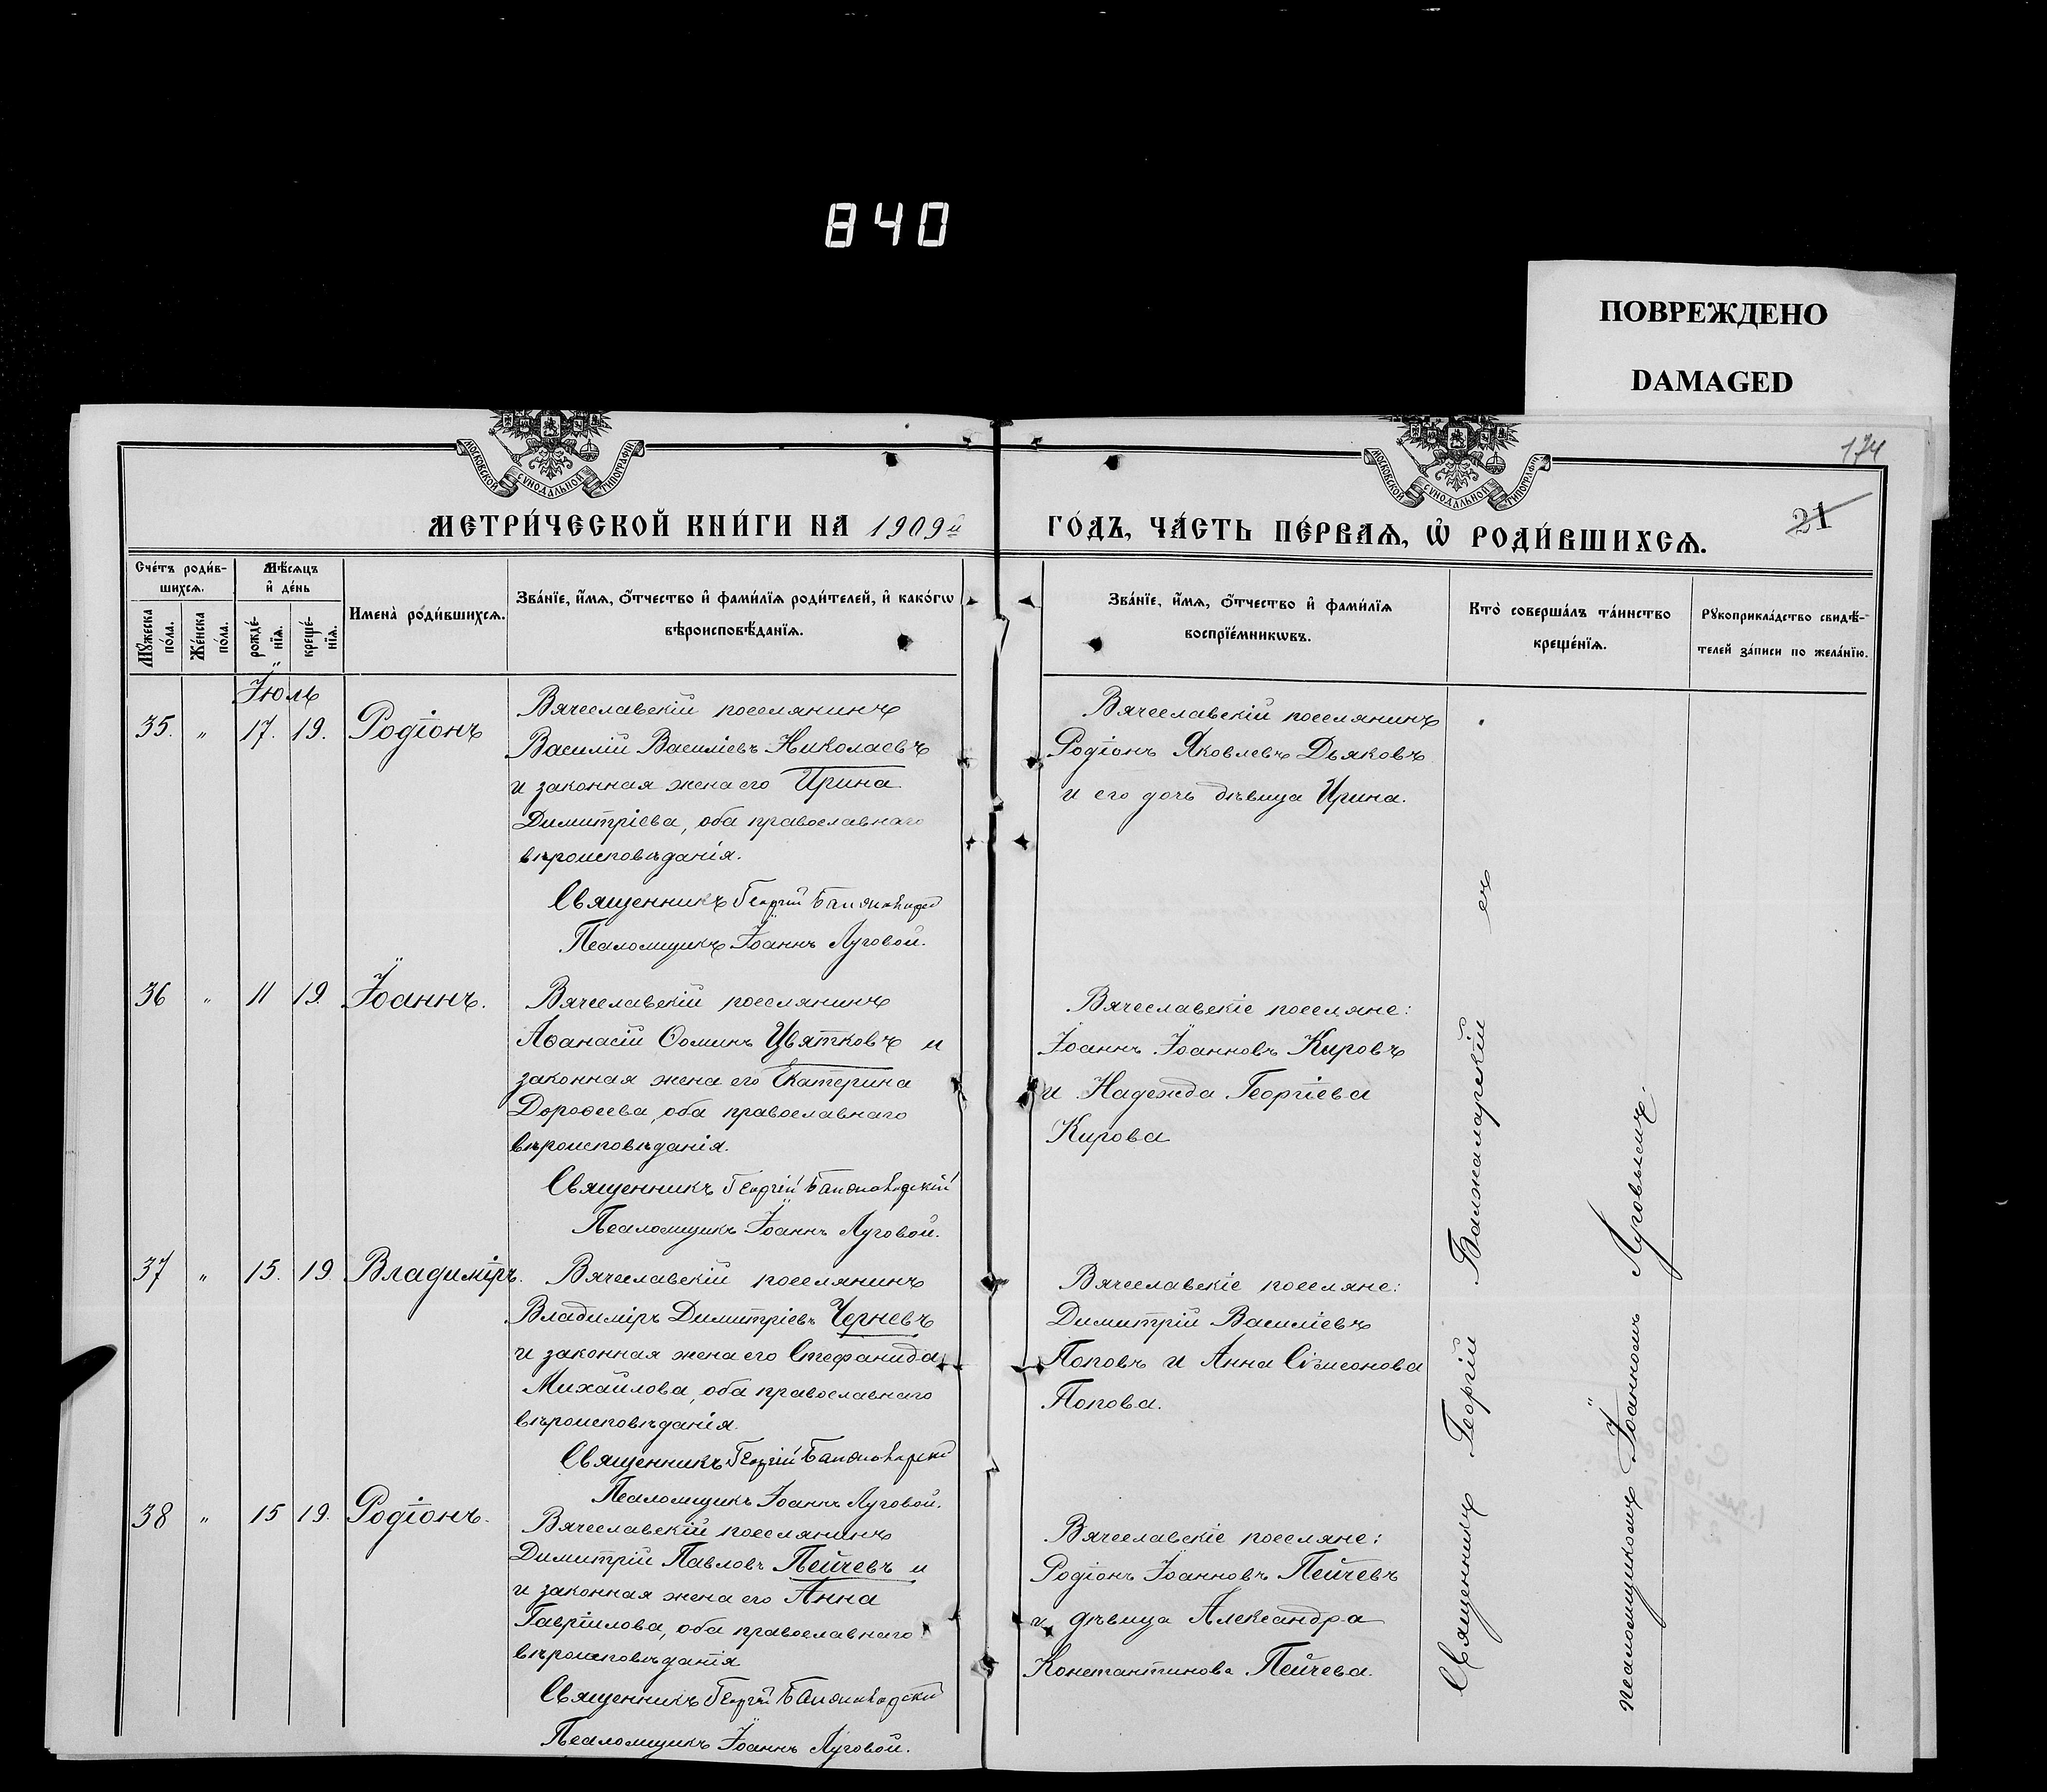 840
ПОВРЕЖДЕНО
DAMAGED
174
21
МОСКОВСКОЙ СУНОДАЛЬНОЙ ТИПОГРАФІИ
МОСКОВСКОЙ СУНОДАЛЬНОЙ ТИПОГРАФІИ
МЕТРИ́ЧЕСКОЙ КНИ́ГИ НА 1909й ГО́ДЪ, ЧА́СТЬ ПЕ́РВАѦ, Ѡ҆ РОДИ́ВШИХСѦ.
Сче́тъ роди́в-
шихсѧ.
Мꙋ́жеска по́ла.
Же́нска по́ла.
Мѣ́сѧцъ
и҆ де́нь
рожде́-
нїѧ.
креще́-
нїѧ.
Имена̀ роди́вшихсѧ.
Зва́нїе, и҆́мѧ, ѻ҆́тчество и҆ фами́лїѧ роди́телей, и҆ како́гѡ
вѣроисповѣ́данїѧ.
Зва́нїе, и҆́мѧ, ѻ҆́тчество и҆ фами́лїѧ
воспрїе́мникѡвъ.
Кто̀ соверша́лъ та́инство
креще́нїѧ.
Рꙋкоприкла́дство свидѣ́-
телей за́писи по жела́нїю.
Іюль
35. " 17. 19. Родіонъ
Вячеславскій поселянинъ
Василій Василіевъ Николаевъ
и законная жена его Ирина
Димитріева, оба православнаго
вѣроисповѣданія.
Священникъ Георгій
Псаломщикъ Іоаннъ Луговой.
Вячеславскій поселянинъ
Родіонъ Яковлевъ Дьяковъ
и его дочь дѣвица Ирина.
36 " 11 19. Іоаннъ.
Вячеславскій поселянинъ
Аѳанасій Ѳоминъ Цвятковъ и
законная жена его Екатерина
Дороѳеева, оба православнаго
вѣроисповѣданія.
Священникъ Георгій
Псаломщикъ Іоаннъ Луговой.
Вячеславскіе поселяне:
Іоаннъ Іоанновъ Кировъ
и Надежда Георгіева
Кирова
37 " 15. 19. Владиміръ.
Вячеславскій поселянинъ
Владиміръ Димитріевъ Черневъ
и законная жена его Стефанида
Михайлова, оба православнаго
вѣроисповѣданія.
Священникъ Георгій
Псаломщикъ Іоаннъ Луговой.
Вячеславскіе поселяне:
Димитрій Василіевъ
Поповъ и Анна Сімеонова
Попова.
38 " 15 19. Родіонъ.
Вячеславскій поселянинъ
Димитрій Павловъ Пейчевъ и
и законная жена его Анна
Гавріилова, оба православнаго
вѣроисповѣданія
Священникъ Георгій
Псаломщикъ Іоаннъ Луговой.
Вячеславскіе поселяне:
Родіонъ Іоанновъ Пейчевъ
и дѣвица Александра
Константинова Пейчева.
Священникъ Георгій съ
псаломщикомъ Іоанномъ Луговымъ.